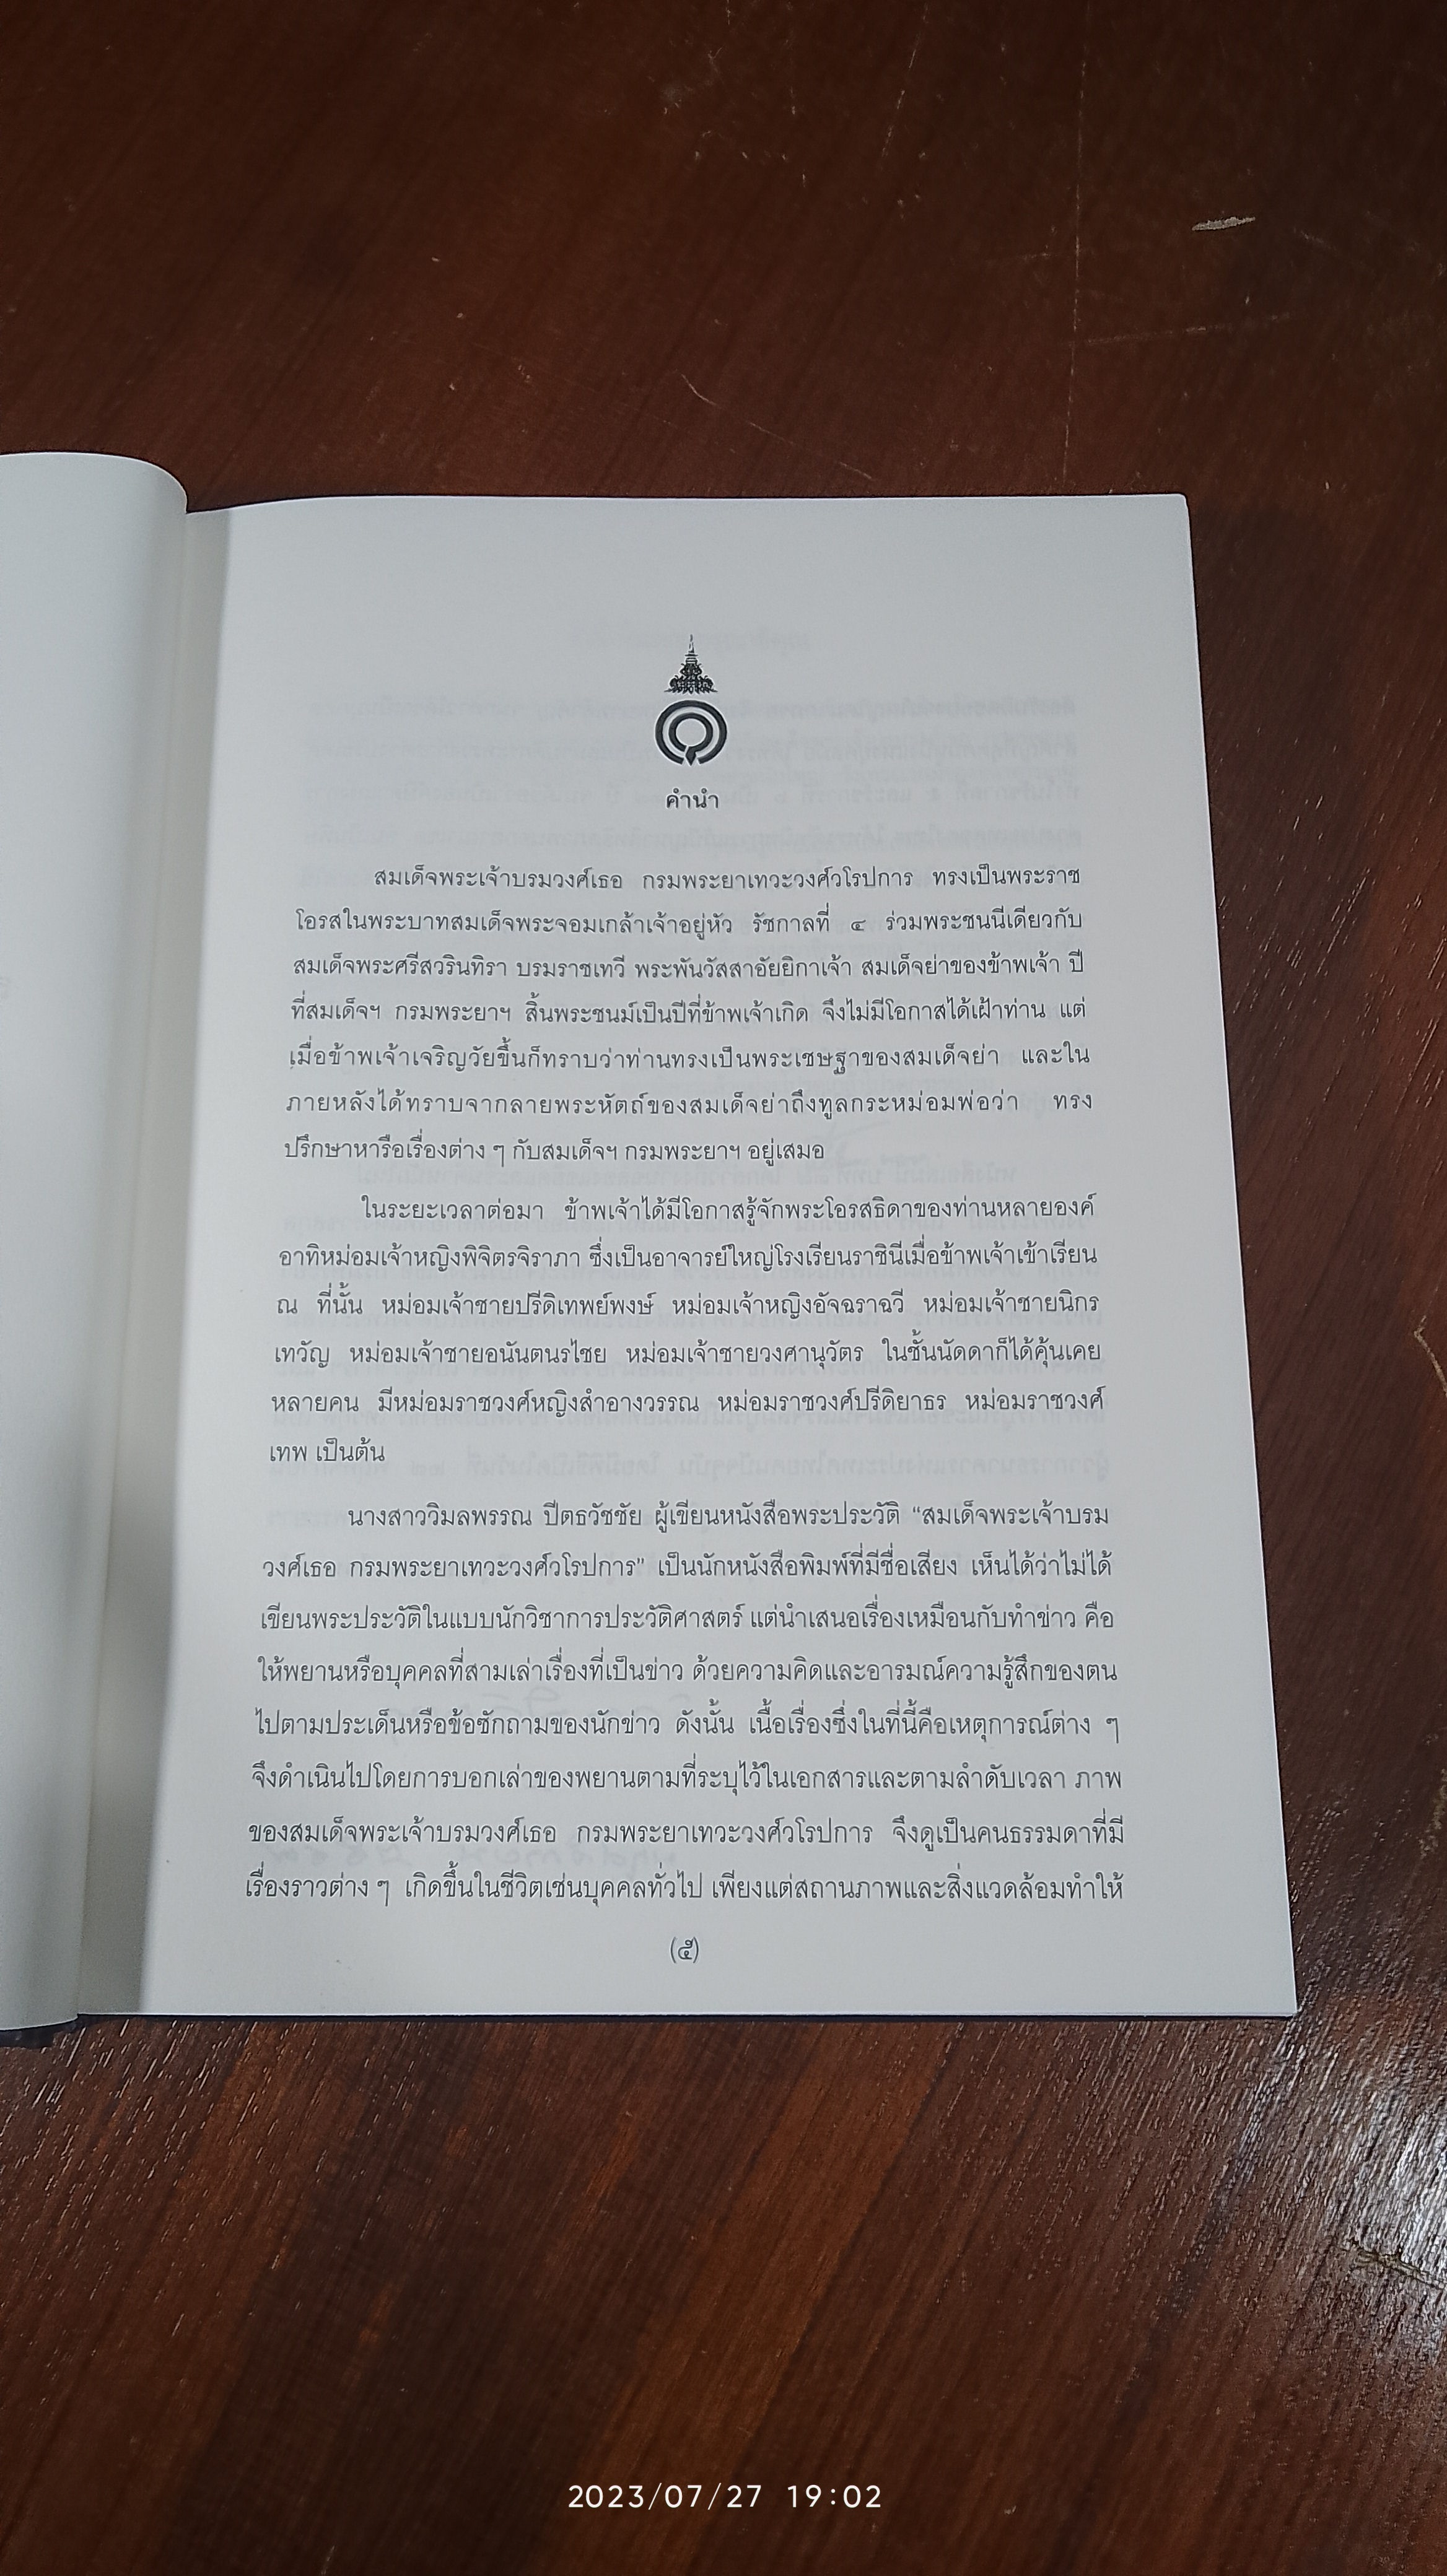 คำนำ
สมเด็จพระเจ้าบรมวงศ์เธอ กรมพระยาเทวะวงศ์วโรปการ ทรงเป็นพระราช
โอรสในพระบาทสมเด็จพระจอมเกล้าเจ้าอยู่หัว รัชกาลที่ ๔ ร่วมพระชนนีเดียวกับ
สมเด็จพระศรีสวรินทิรา บรมราชเทวี พระพันวัสสาอัยยิกาเจ้า สมเด็จย่าของข้าพเจ้า ปี
ที่สมเด็จฯ กรมพระยาฯ สิ้นพระชนม์เป็นปีที่ข้าพเจ้าเกิด จึงไม่มีโอกาสได้เฝ้าท่าน แต่
เมื่อข้าพเจ้าเจริญวัยขึ้นก็ทราบว่าท่านทรงเป็นพระเชษฐาของสมเด็จย่า และใน
ภายหลังได้ทราบจากลายพระหัตถ์ของสมเด็จย่าถึงทูลกระหม่อมพ่อว่า ทรง
ปรึกษาหารือเรื่องต่าง ๆ กับสมเด็จฯ กรมพระยาฯ อยู่เสมอ
ในระยะเวลาต่อมา ข้าพเจ้าได้มีโอกาสรู้จักพระโอรสธิดาของท่านหลายองค์
อาทิหม่อมเจ้าหญิงพิจิตรจิราภา ซึ่งเป็นอาจารย์ใหญ่โรงเรียนราชินีเมื่อข้าพเจ้าเข้าเรียน
ณ ที่นั้น หม่อมเจ้าชายปรีดิเทพย์พงษ์ หม่อมเจ้าหญิงอัจฉราฉวี หม่อมเจ้าชายนิกร
เทวัญ หม่อมเจ้าชายอนันตนรไชย หม่อมเจ้าชายวงศานุวัตร ในชั้นนัดดาก็ได้คุ้นเคย
หลายคน มีหม่อมราชวงศ์หญิงสำอางวรรณ หม่อมราชวงศ์ปรีดิยาธร หม่อมราชวงศ์
เทพ เป็นต้น
นางสาววิมลพรรณ ปีตธวัชชัย ผู้เขียนหนังสือพระประวัติ “สมเด็จพระเจ้าบรม
วงศ์เธอ กรมพระยาเทวะวงศ์วโรปการ” เป็นนักหนังสือพิมพ์ที่มีชื่อเสียง เห็นได้ว่าไม่ได้
เขียนพระประวัติในแบบนักวิชาการประวัติศาสตร์ แต่นำเสนอเรื่องเหมือนกับทำข่าว คือ
ให้พยานหรือบุคคลที่สามเล่าเรื่องที่เป็นข่าว ด้วยความคิดและอารมณ์ความรู้สึกของตน
ไปตามประเด็นหรือข้อซักถามของนักข่าว ดังนั้น เนื้อเรื่องซึ่งในที่นี้คือเหตุการณ์ต่าง ๆ
จึงดำเนินไปโดยการบอกเล่าของพยานตามที่ระบุไว้ในเอกสารและตามลำดับเวลา ภาพ
ของสมเด็จพระเจ้าบรมวงศ์เธอ กรมพระยาเทวะวงศ์วโรปการ จึงดูเป็นคนธรรมดาที่มี
เรื่องราวต่าง ๆ เกิดขึ้นในชีวิตเช่นบุคคลทั่วไป เพียงแต่สถานภาพและสิ่งแวดล้อมทำให้
(๕)
2023/07/27 19:02